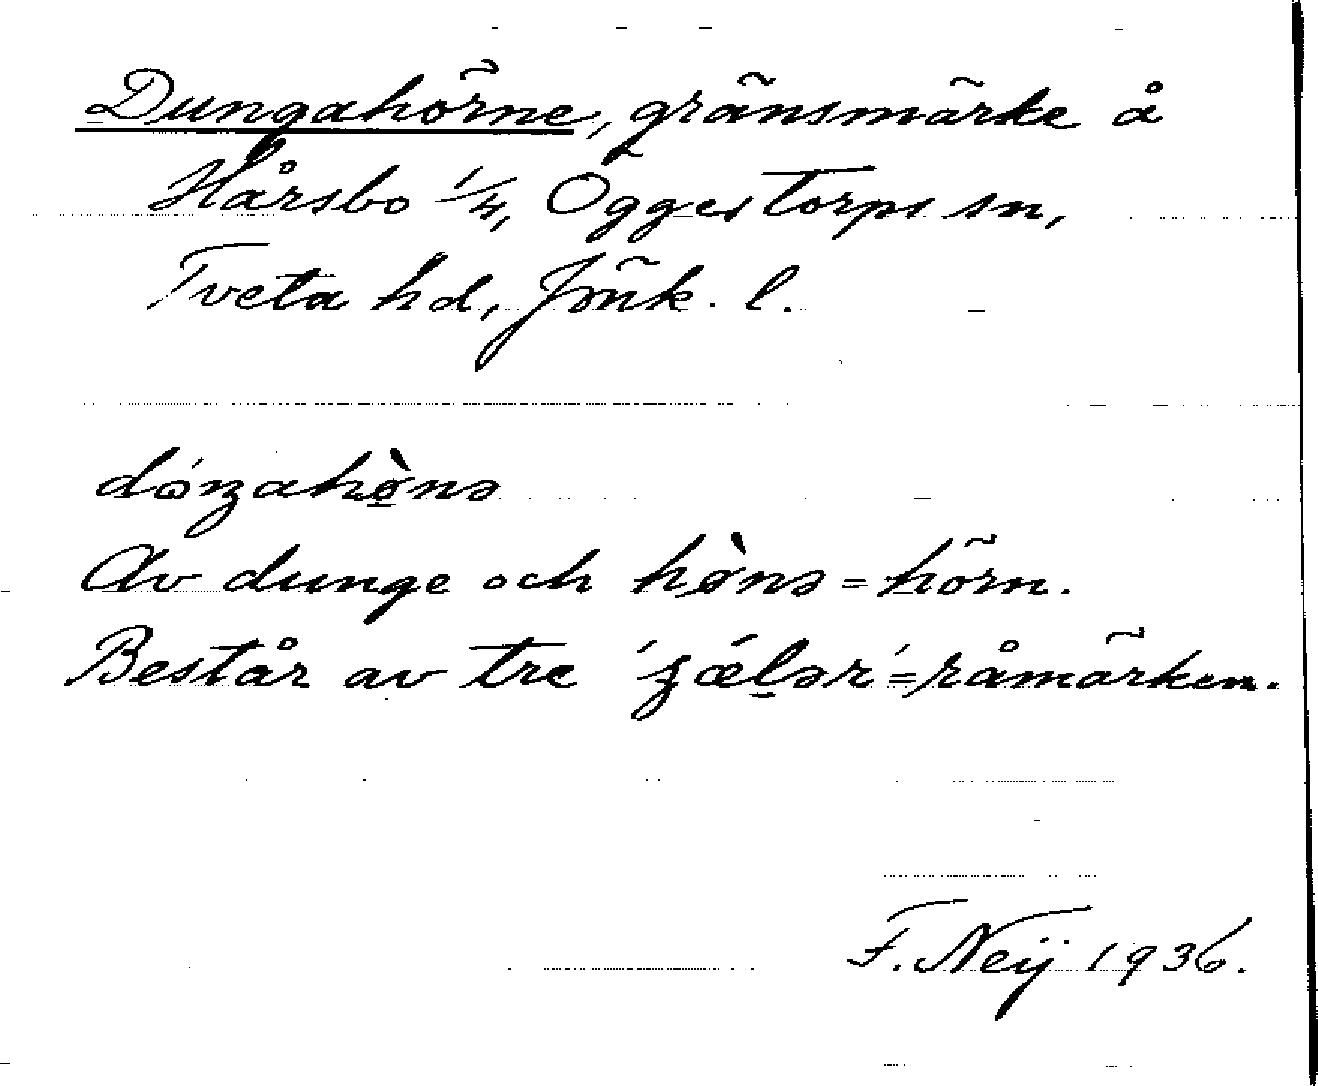 Dungahörne, gränsmärke å
Hårsbo 1/4, Öggestorps sn,
Tveta hd, Jönk. l.
dóŋahø̀nə
Av dunge och hø̀nə = hörn.
Består av tre ʹʒǽlərʹ = råmärken.
F. Neij 1936.